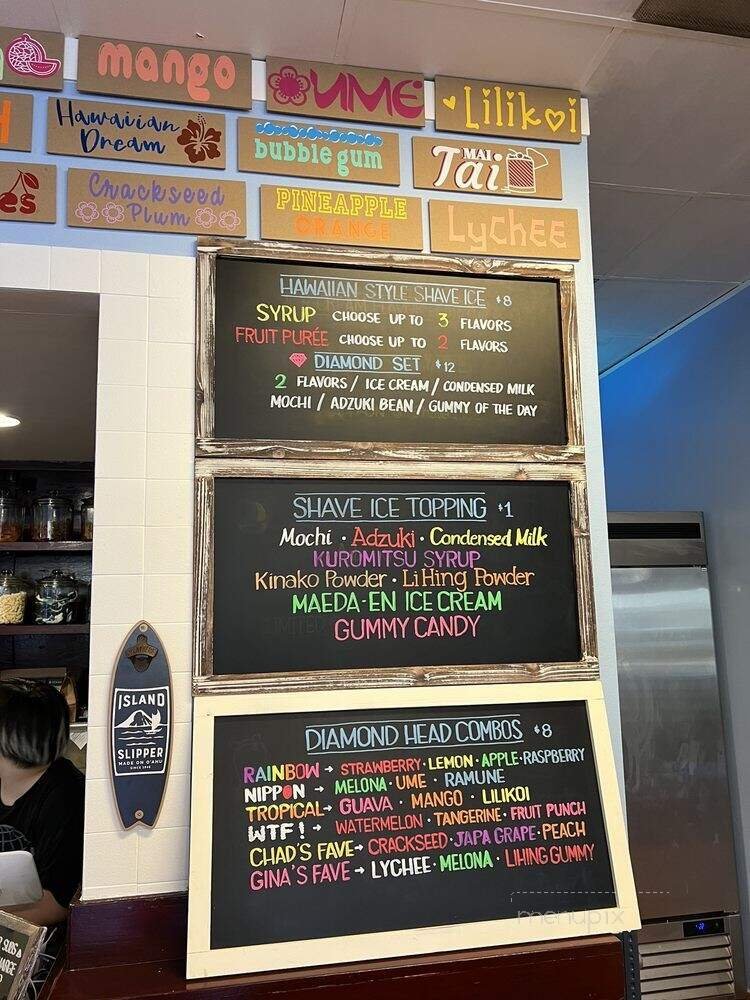 mango
UME
Lilikoi
Hawaiian
Dream
bubble gum
MAI
Tai
es
Crackseed
Plum
PINEAPPLE
ORANGE
LycHEE
HAWAIIAN STYLE SHAVE ICE $8
SYRUP CHOOSE UP TO 3 FLAVORS
FRUIT PURÉE CHOOSE UP TO 2 FLAVORS
DIAMOND SET $12
2 FLAVORS / ICE CREAM / CONDENSED MILK
MOCHI / ADZUKI BEAN / GUMMY OF THE DAY
SHAVE ICE TOPPING $1
Mochi · Adzuki · Condensed Milk
KUROMITSU SYRUP
Kinako Powder · Li Hing Powder
MAEDA-EN ICE CREAM
GUMMY CANDY
ISLAND
SLIPPER
MADE ON O'AHU
SINCE 1946
DIAMOND HEAD COMBOS $8
RAINBOW → STRAWBERRY · LEMON · APPLE · RASPBERRY
NIPPON → MELONA · UME · RAMUNE
TROPICAL → GUAVA · MANGO · LILIKOI
WTF! → WATERMELON · TANGERINE · FRUIT PUNCH
CHAD'S FAVE → CRACKSEED · JAPA GRAPE · PEACH
GINA'S FAVE → LYCHEE · MELONA · LIHING GUMMY
menupix